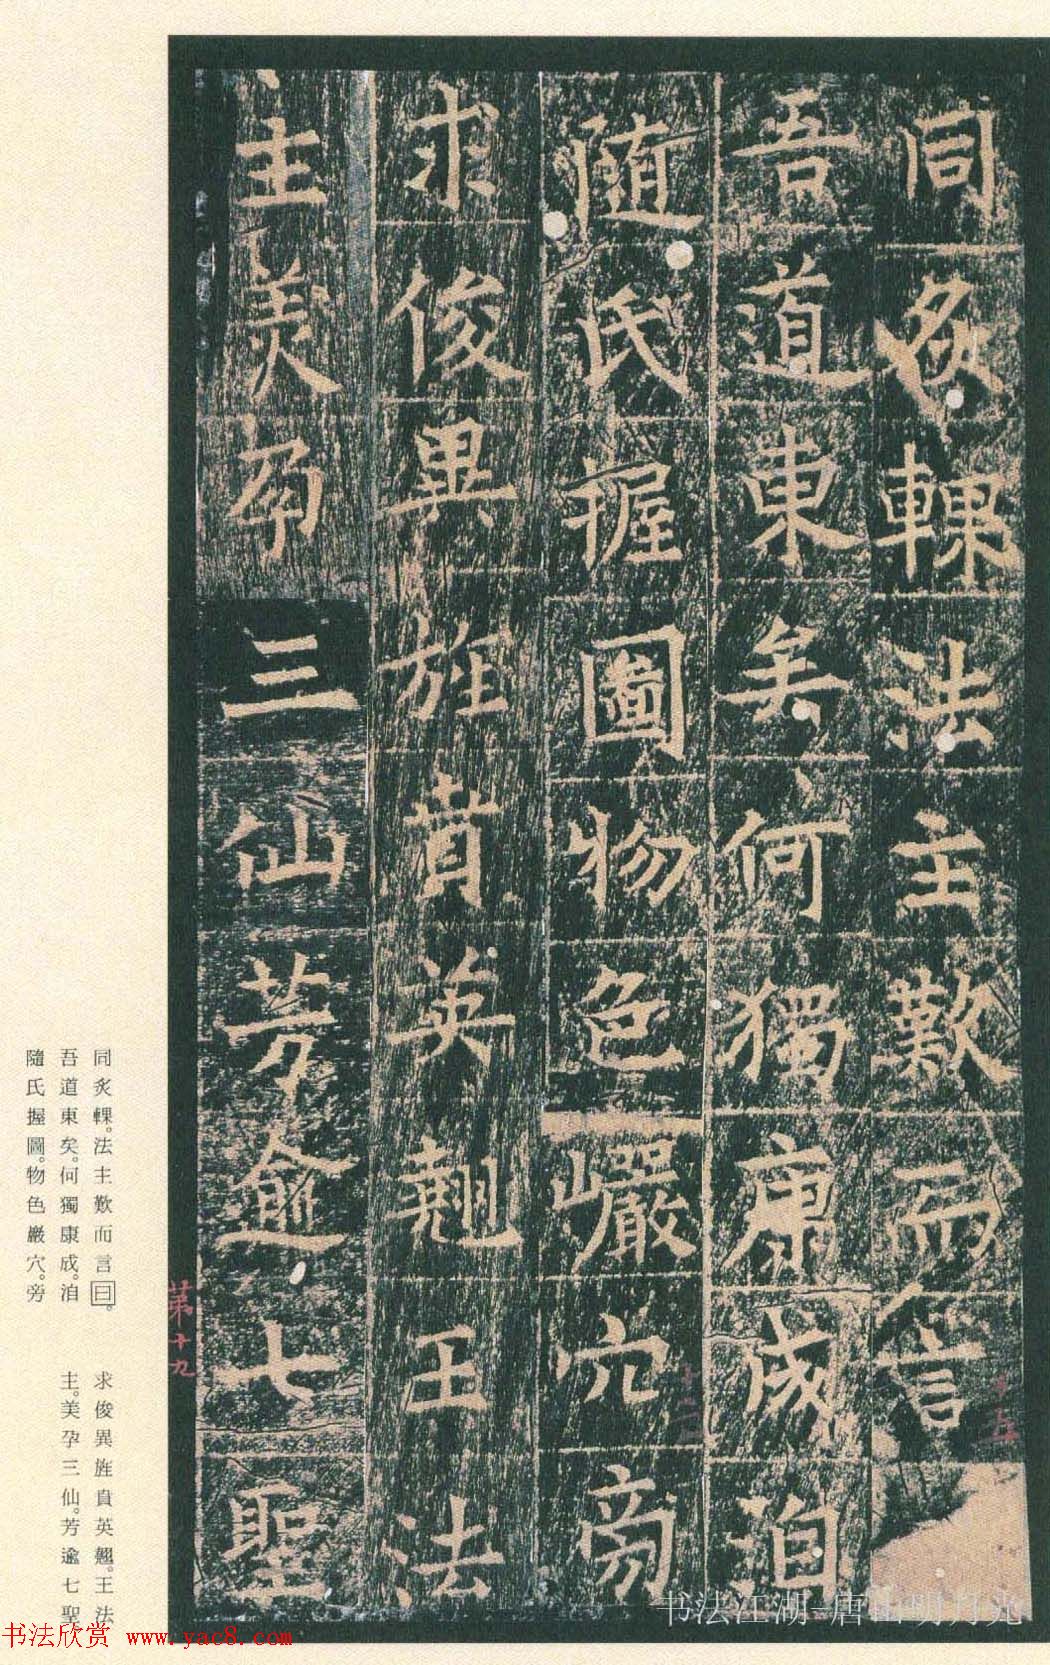 同炙輠法主歎而言
吾道東矣何獨康成洎
隨氏握圖物色巖穴旁
求俊異旌賁英翹王法
主美孕三仙芳逾七聖
十五
十六
第十九
同炙輠。法主歎而言曰。
吾道東矣。何獨康成。洎
隨氏握圖。物色巖穴。旁
求俊異旌賁英翹。王法
主。美孕三仙。芳逾七聖
书法欣赏 www.yac8.com